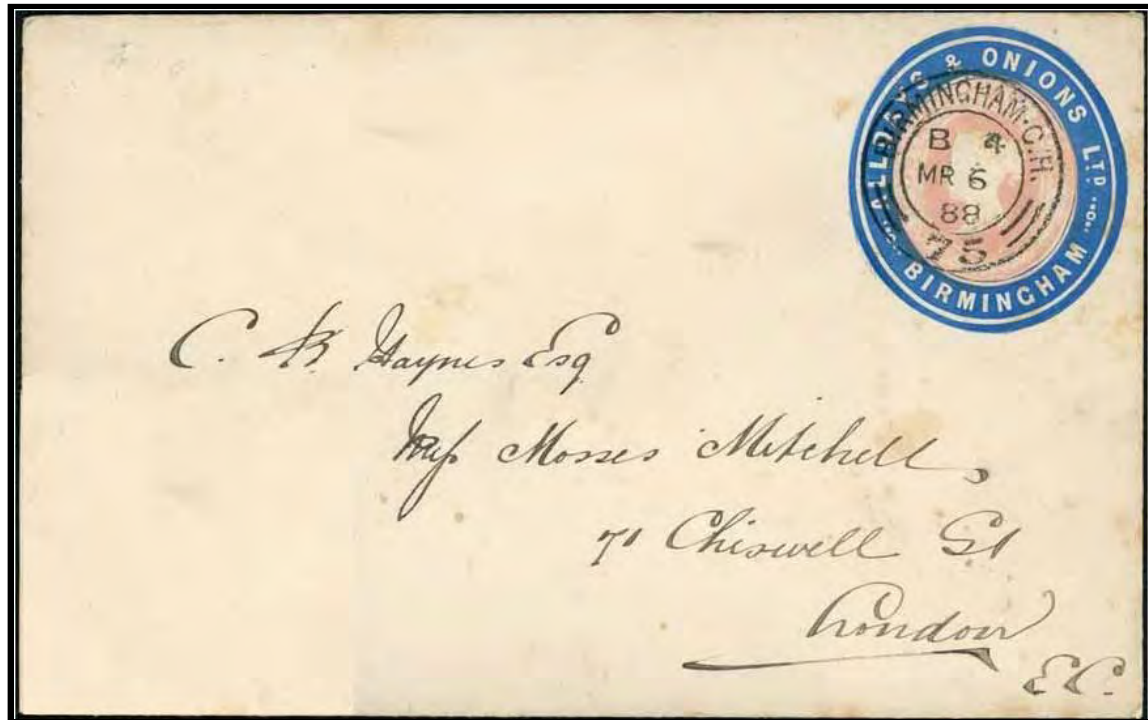 ALLDAYS & ONIONS LTD
BIRMINGHAM
BIRMINGHAM·C.H.
B 4
MR 6
88
75
C. B Haynes Esq
Mosses Mitchell
Chiswell St
London
E.C.